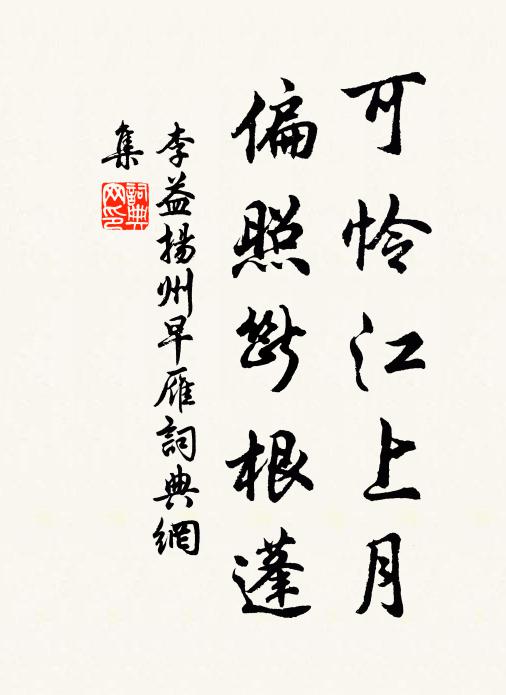 可怜江上月
偏照斷根蓬
李益揚州早雁詞典網
集
詞典
网印